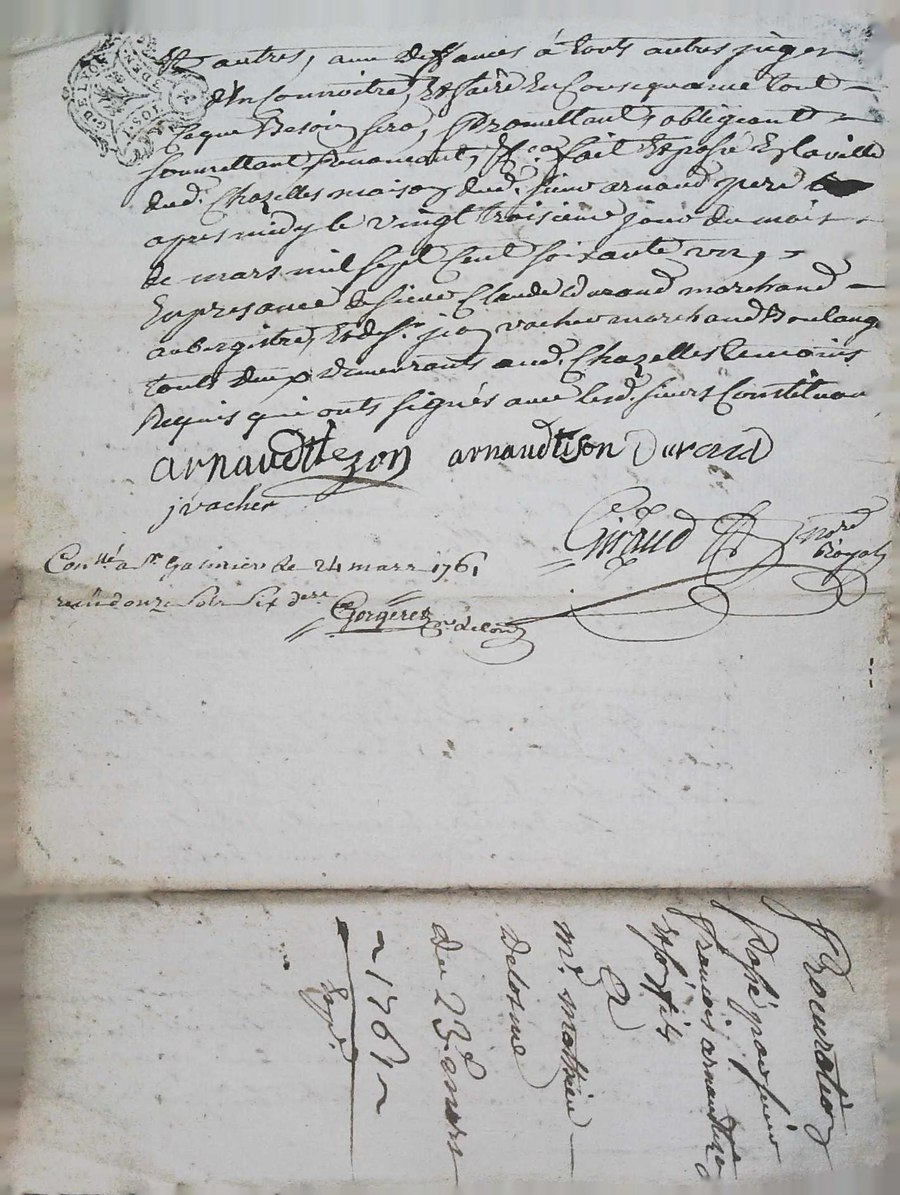 Et autres, aux deffances à touts autres juges
d'En Connoitre, Et faire En Consequance tout
Ceque Besoin sera, Promettant, obligeant
soumettant Renonceant, &ca fait Et passé En la ville
dud. Chazelles maison dud. sieur arnaud pere
apres midy le vingt troisieme jour du mois
de mars mil sept Cent soixante un,
En presance de sieur Claude durand marchand
aubergiste, Et de sr. jean vacher marchand Boulang
touts deux demeurants aud. Chazelles temoins
Requis qui onts signés avec lesd. sieurs Constituan
arnaudtizon arnaudtison Durand
jvacher
Giraud nore Royal
Conllé a St Galmier le 24 mars 1761
reçu douze sols six ders
Gorgeret
Procuration
Passé par sieur
francois arnaud
et son fils
A
Mr. Mathieu
Delosme
du 23e mars
1761
Expé.